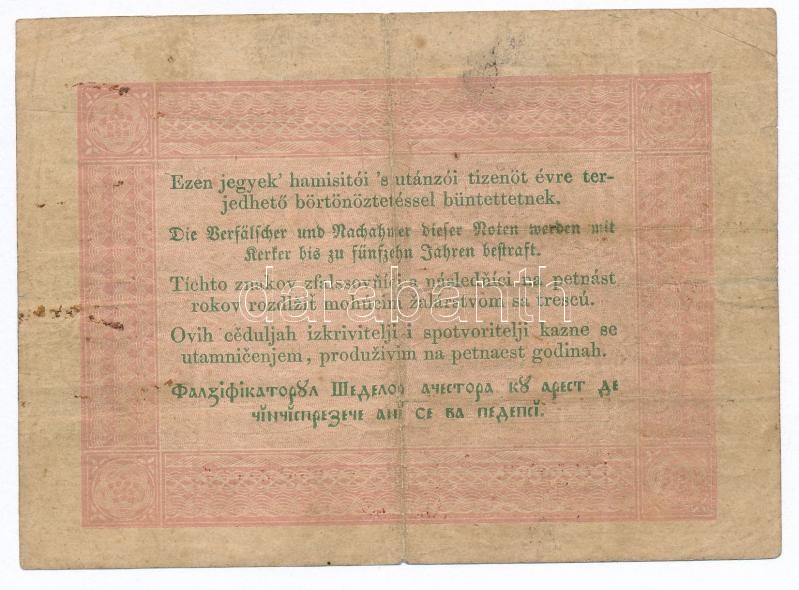 Ezen jegyek' hamisitói 's utánzói tizenöt évre ter-
jedhető börtönöztetéssel büntettetnek.
Die Verfälscher und Nachahmer dieser Noten werden mit
Kerker bis zu fünfzehn Jahren bestraft.
Tíchto znakov zfalssovňíci a následňíci na petnást
rokov rozdĺžiť mohúcím žalárstvom sa trescú.
darabanth
Ovih cěduljah izkrivitelji i spotvoritelji kazne se
utamničenjem, produživim na petnaest godinah.
Фалзіфікаторꙋл Шеделор ачестора кꙋ арест де
чінчіспрезече ані се ва педепсі.